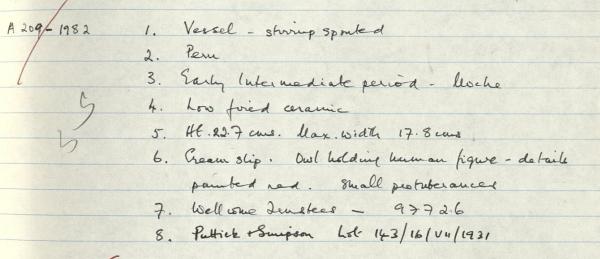 A 209-1982 1. Vessel - stirrup spouted
2. Peru
3. Early Intermediate period - Moche
4. Low fired ceramic
5. Ht. 22.7 cms. Max. width 17.8 cms
6. Cream slip. Owl holding human figure - details
painted red. Small protuberances
7. Wellcome Trustees - 97726
8. Puttick + Simpson Lot 143/16/VII/1931